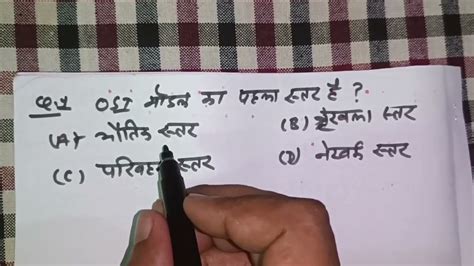 Q.1 OSI मॉडल का पहला स्तर है ?
(A) भौतिक स्तर (B) श्रृंखला स्तर
(C) परिवहन स्तर (D) नेटवर्क स्तर